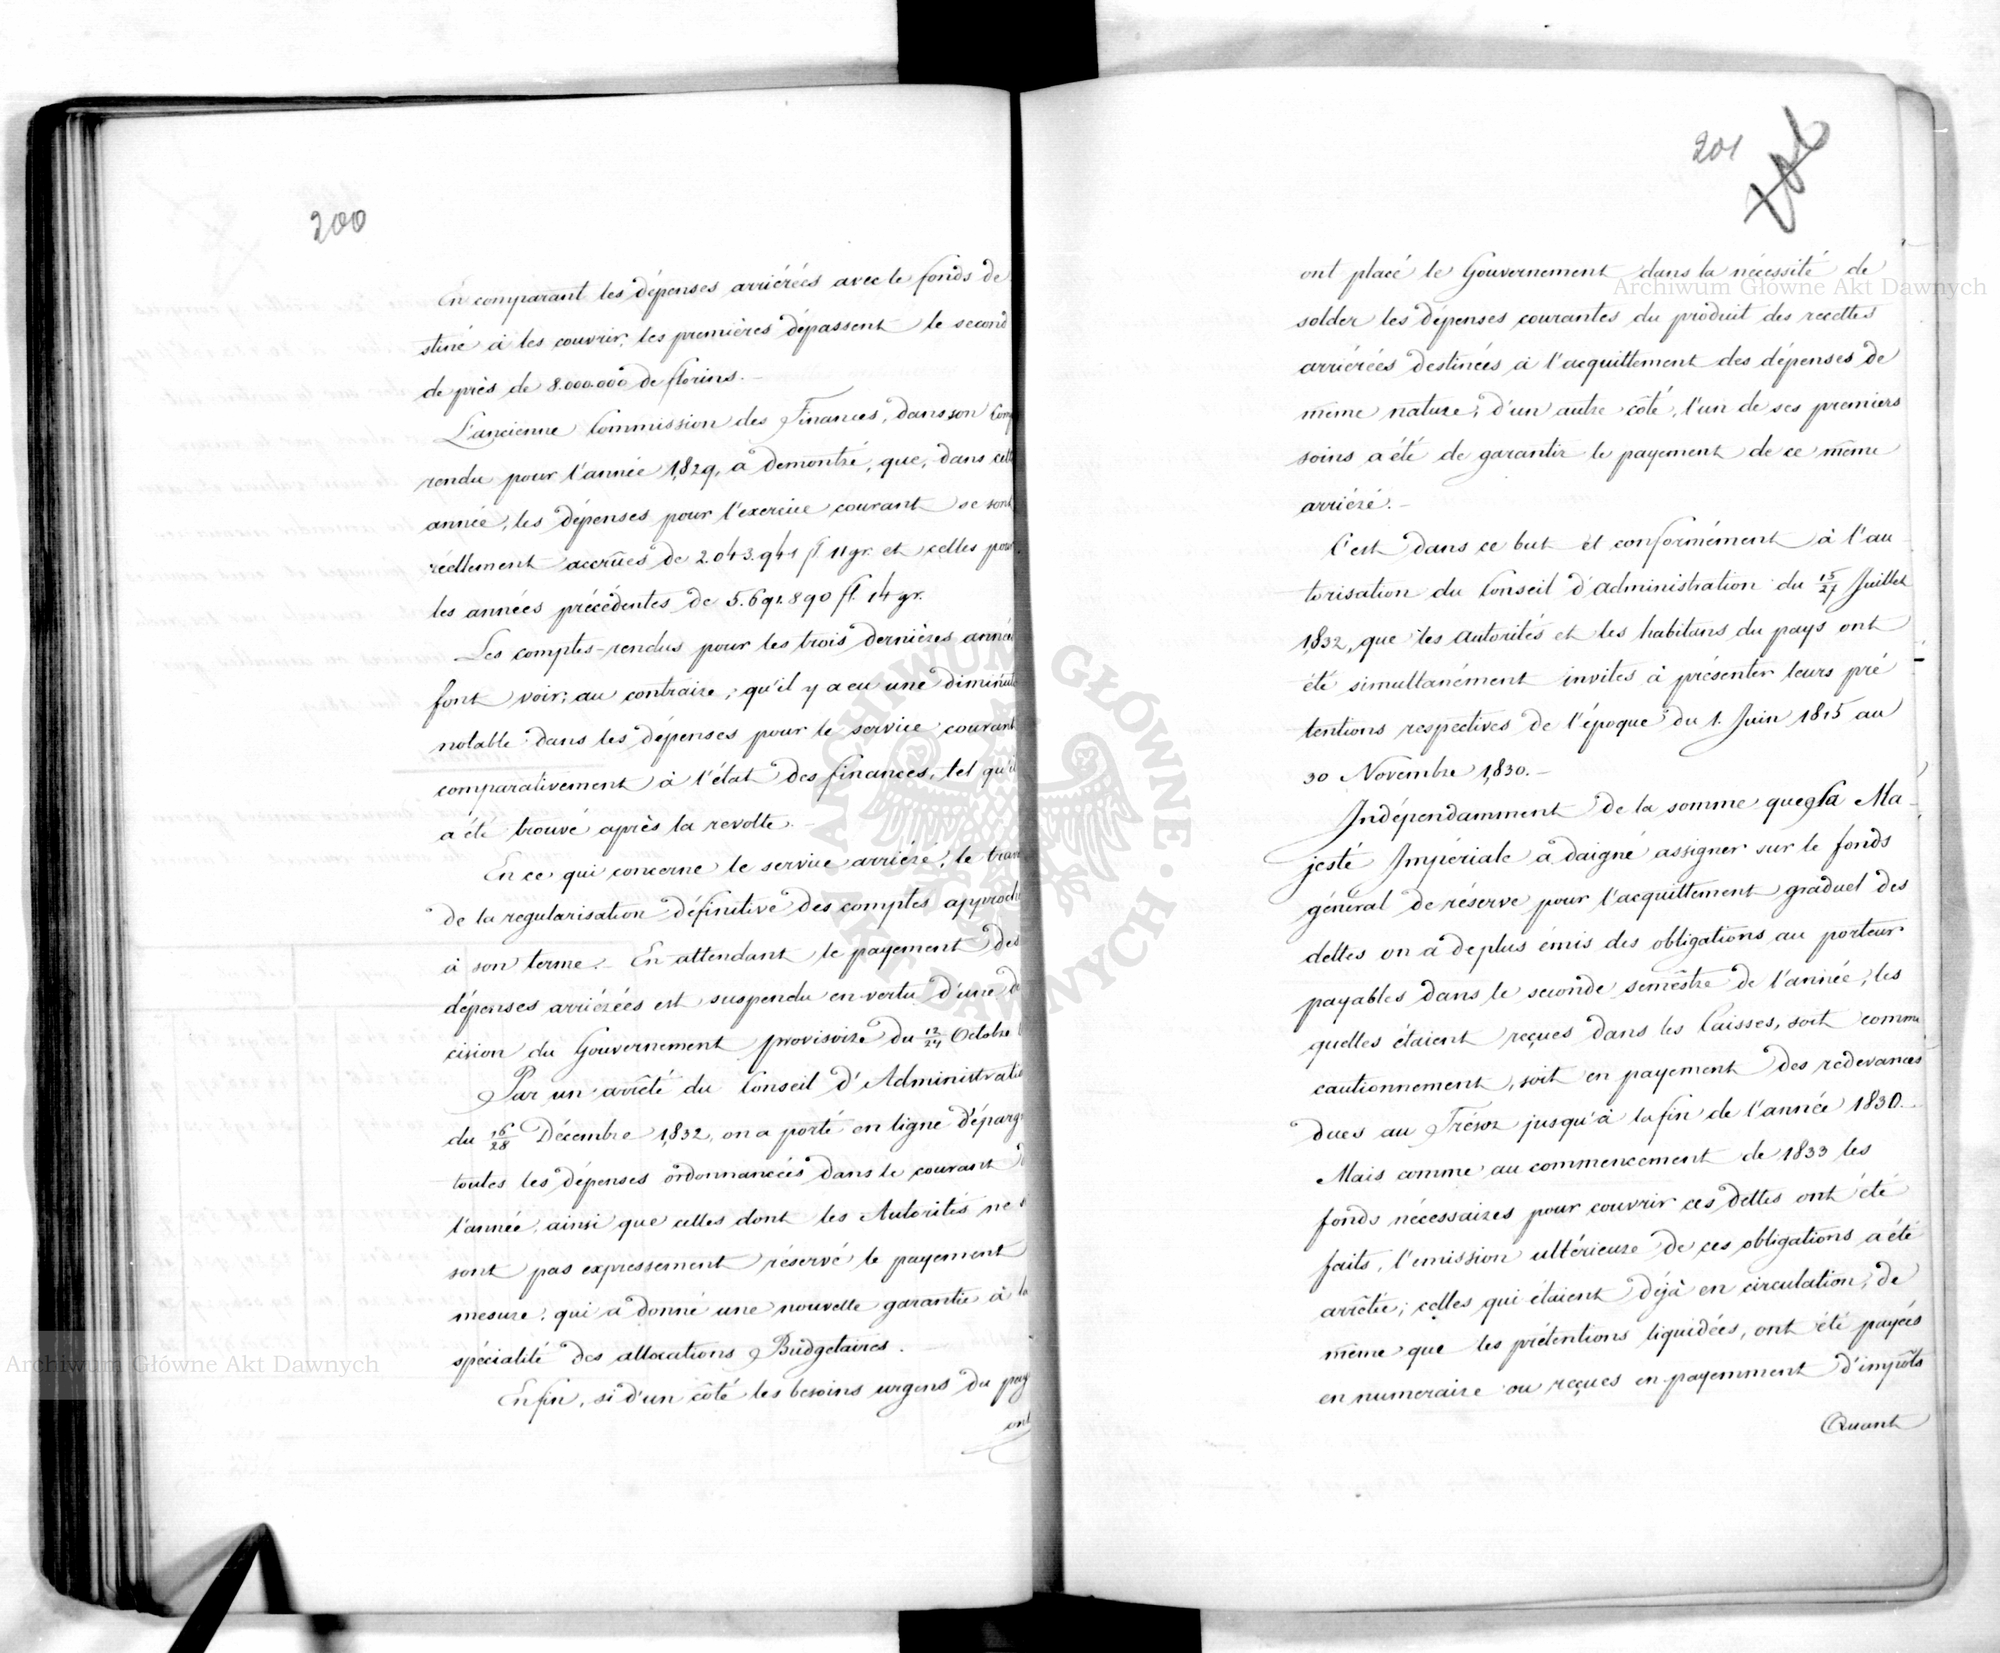 200
En comparant les dépenses arriérées avec le fonds de
stiné à les couvrir, les premières dépassent le second
de près de 8.000.000 de florins. –
L'ancienne Commission des Finances, dans son Com
rendu pour l'année 1829, a demontré, que, dans cett
année, les dépenses pour l'exercice courant se sont
réellement accrûes de 2.043.941 fl. 11 gr. et celles pour
les années précédentes de 5.691.890 fl. 14 gr.
Les comptes-rendus pour les trois dernières anné
font voir, au contraire, qu'il y a eu une diminut
notable dans les dépenses pour le service courant
comparativement à l'état des finances, tel qu'il
a été trouvé après la revolte. –
En ce qui concerne le service arriéré, le trav
de la regularisation définitive des comptes approch
à son terme. – En attendant le payement des
dépenses arriérées est suspendu en vertu d'une d
cision du Gouvernement provisoire du 12/24 Octobre
Par un arrêté du Conseil d'Administratio
du 16/28 Décembre 1832, on a porté en ligne d'éparg
toutes les dépenses ordonnancées dans le courant d
l'année, ainsi que celles dont les Autorités ne s
sont pas expressement réservé le payement
mesure, qui a donné une nouvelle garantie à la
spécialité des allocations Budgetaires.
Enfin, si d'un côté les besoins urgens du pay
ont
201
ont placé le Gouvernement dans la nécessité de
solder les dépenses courantes du produit des recettes
arriérées destinées à l'acquittement des dépenses de
même nature; d'un autre côté, l'un de ses premiers
soins a été de garantir le payement de ce même
arriéré. –
C'est dans ce but et conformément à l'au
torisation du Conseil d'administration du 15/27 Juillet
1832, que les autorités et les habitans du pays ont
été simultanément invités à présenter leurs pré
tentions respectives de l'époque du 1. Juin 1815 au
30 Novembre 1830. –
Indépendamment de la somme que Sa Ma
jesté Impériale a daigné assigner sur le fonds
général de réserve pour l'acquittement graduel des
dettes on a de plus émis des obligations au porteur
payables dans le seconde semêstre de l'année, les
quelles étaient reçues dans les Caisses, soit comme
cautionnement, soit en payement des redevances
dues au Trésor jusqu'à la fin de l'année 1830. –
Mais comme au commencement de 1833 les
fonds nécessaires pour couvrir ces dettes ont été
faits, l'emission ultérieure de ces obligations a été
arrêtée; celles qui étaient déjà en circulation, de
même que les prétentions liquidées, ont été payées
en numeraire ou reçues en payemment d'impôts
Quant
Archiwum Główne Akt Dawnych
Archiwum Główne Akt Dawnych
ARCHIWUM GŁÓWNE AKT DAWNYCH